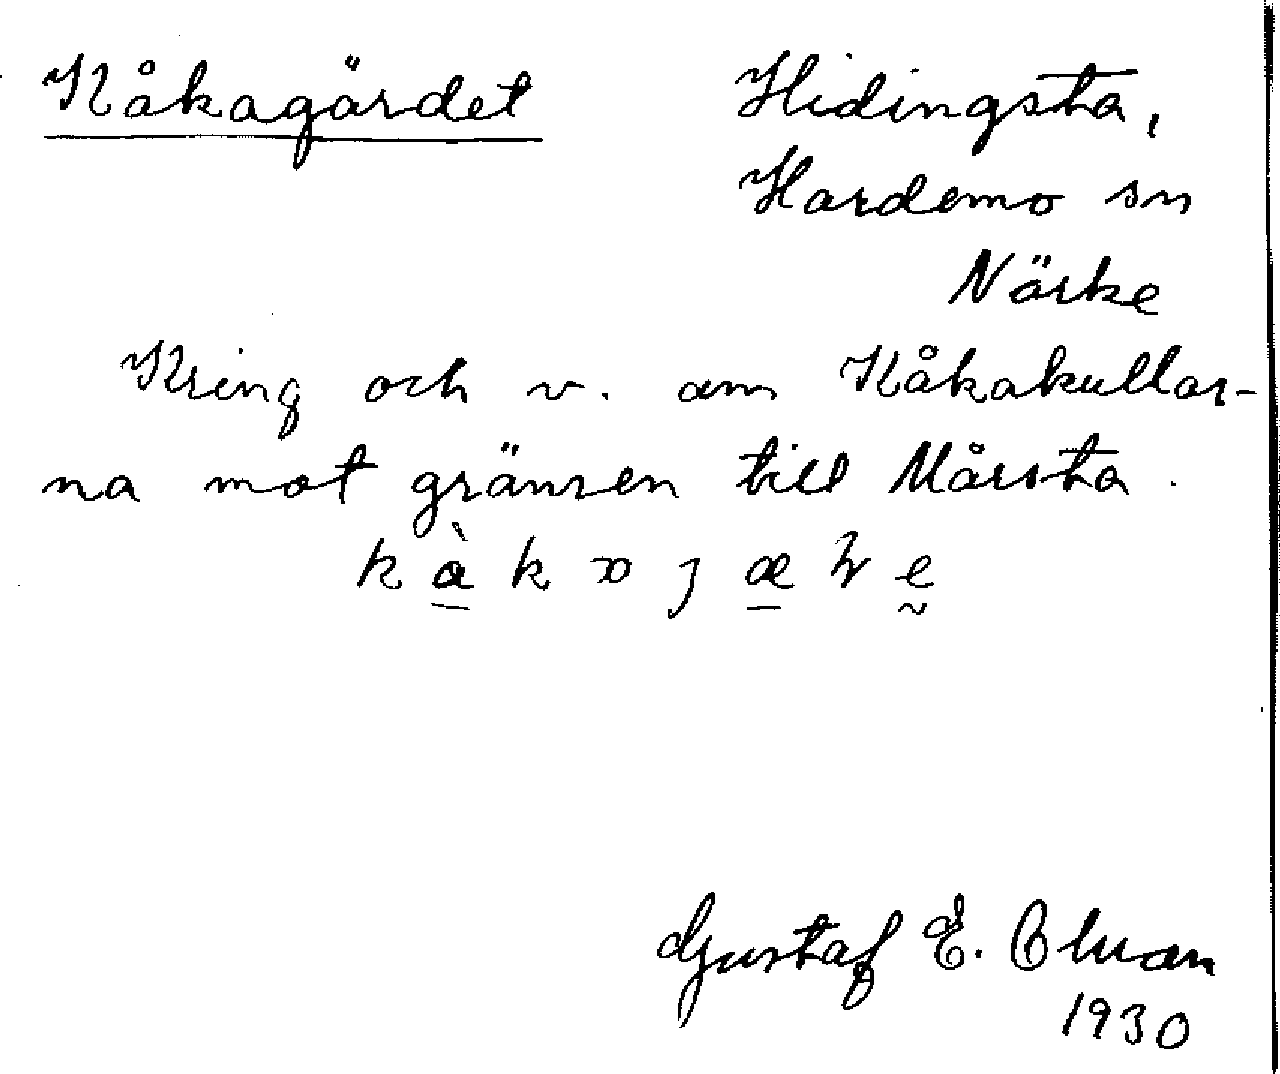 Kåkagärdet
Hidingsta,
Hardemo sn
Närke
Kring och v. om Kåkakullar-
na mot gränsen till Mårsta.
Gustaf E. Olsson
1930